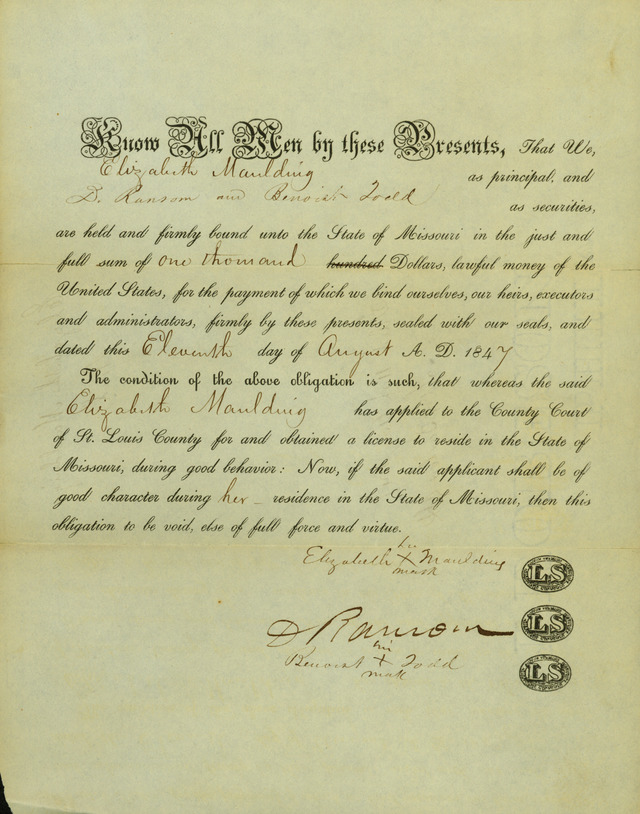 Know All Men by these Presents, That We,
Elizabeth Maulding as principal, and
D. Ransom and Benoist Todd as securities,
are held and firmly bound unto the State of Missouri in the just and
full sum of one thousand hundred Dollars, lawful money of the
United States, for the payment of which we bind ourselves, our heirs, executors
and administrators, firmly by these presents, sealed with our seals, and
dated this Eleventh day of August A. D. 1847
The condition of the above obligation is such, that whereas the said
Elizabeth Maulding has applied to the County Court
of St. Louis County for and obtained a license to reside in the State of
Missouri, during good behavior: Now, if the said applicant shall be of
good character during her residence in the State of Missouri, then this
obligation to be void, else of full force and virtue.
Elizabeth X Maulding
mark
LS
D Ransom
LS
his
Benoist X Todd
mark
LS